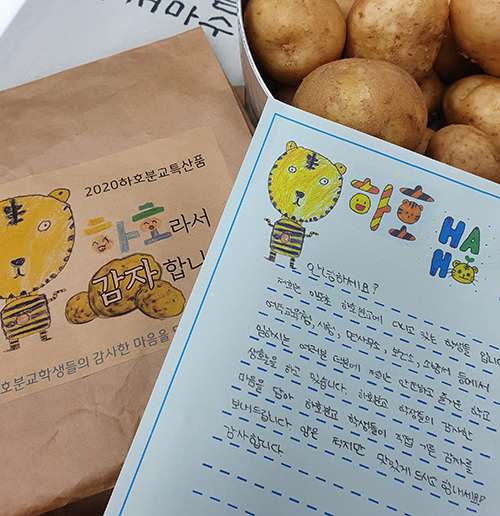 2020하호분교특산품
하호라서
감자합니
호분교학생들의 감사한 마음을
하호 HA
HO
안녕하세요?
저희는 이포초 하호분교에 다니고 있는 학생들 입니
여주교육청, 시청, 면사무소, 보건소, 소방서 등에서
일하시는 여러분 덕분에 저희는 안전하고 즐거운 학교
생활을 하고 있습니다. 하호분교 학생들의 감사한
마음을 담아 하호분교 학생들이 직접 기른 감자를
보내드립니다. 양은 적지만 맛있게 드시고 힘내세요!
감사합니다.